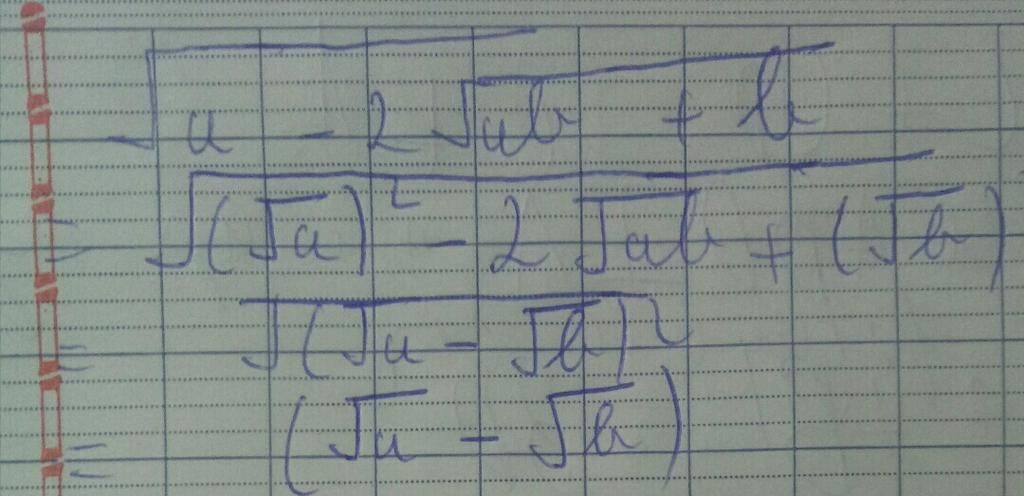 √(a - 2√ab + b)
= √((√a)² - 2√ab + (√b)
= √((√a - √b)²)
= (√a - √b)